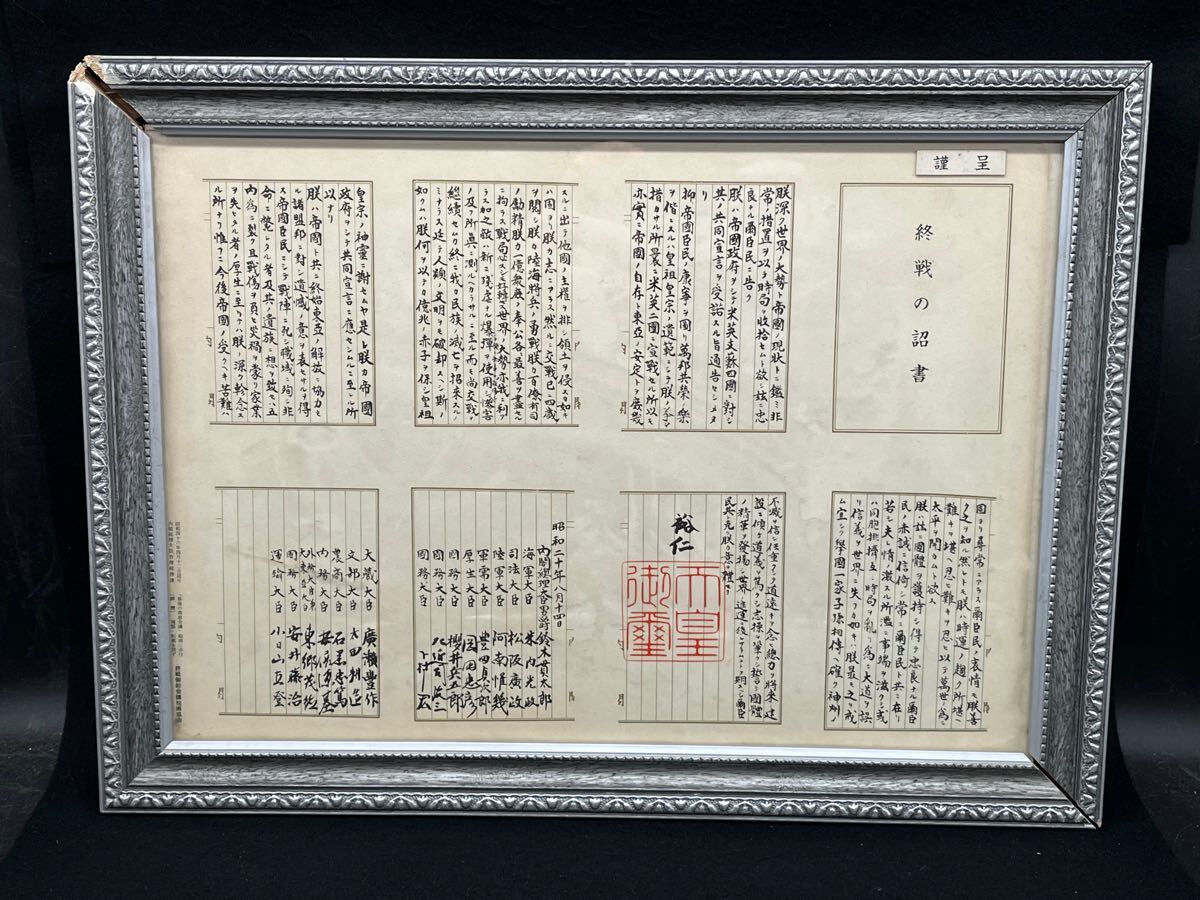 謹呈
終戦の詔書
朕深ク世界ノ大勢ト帝國ノ現狀トニ鑑ミ非
常ノ措置ヲ以テ時局ヲ收拾セムト欲シ茲ニ忠
良ナル爾臣民ニ告ク
朕ハ帝國政府ヲシテ米英支蘇四國ニ對シ
其ノ共同宣言ヲ受諾スル旨通告セシメタ
リ
抑〻帝國臣民ノ康寧ヲ圖リ萬邦共榮ノ樂
ヲ偕ニスルハ皇祖皇宗ノ遺範ニシテ朕ノ拳々
措カサル所曩ニ米英二國ニ宣戰セル所以モ
亦實ニ帝國ノ自存ト東亞ノ安定トヲ庶幾
スルニ出テ他國ノ主權ヲ排シ領土ヲ侵スカ如キ
ハ固ヨリ朕カ志ニアラス然ルニ交戰已ニ四歳
ヲ閲シ朕カ陸海將兵ノ勇戰朕カ百僚有司
ノ勵精朕カ一億衆庶ノ奉公各〻最善ヲ盡セル
ニ拘ラス戰局必スシモ好轉セス世界ノ大勢亦我ニ利ア
ラス加之敵ハ新ニ殘虐ナル爆彈ヲ使用シテ頻ニ無辜ヲ殺傷シ慘害
ノ及フ所眞ニ測ルヘカラサルニ至ル而モ尚交戰ヲ
繼續セムカ終ニ我カ民族ノ滅亡ヲ招來スルノ
ミナラス延テ人類ノ文明ヲモ破却スヘシ斯ノ
如クムハ朕何ヲ以テカ億兆ノ赤子ヲ保シ皇祖
皇宗ノ神靈ニ謝セムヤ是レ朕カ帝國
政府ヲシテ共同宣言ニ應セシムルニ至レル所
以ナリ
朕ハ帝國ト共ニ終始東亞ノ解放ニ協力セ
ル諸盟邦ニ對シ遺憾ノ意ヲ表セサルヲ得
ス帝國臣民ニシテ戰陣ニ死シ職域ニ殉シ非
命ニ斃レタル者及其ノ遺族ニ想ヲ致セハ五
内爲ニ裂ク且戰傷ヲ負ヒ災禍ヲ蒙リ家業
ヲ失ヒタル者ノ厚生ニ至リテハ朕ノ深ク軫念ス
ル所ナリ惟フニ今後帝國ノ受クヘキ苦難ハ
固ヨリ尋常ニアラス爾臣民ノ衷情モ朕善
ク之ヲ知ル然レトモ朕ハ時運ノ趨ク所堪ヘ
難キヲ堪ヘ忍ヒ難キヲ忍ヒ以テ萬世ノ爲ニ
太平ヲ開カムト欲ス
朕ハ茲ニ國體ヲ護持シ得テ忠良ナル爾臣
民ノ赤誠ニ信倚シ常ニ爾臣民ト共ニ在リ
若シ夫レ情ノ激スル所濫ニ事端ヲ滋クシ或
ハ同胞排擠互ニ時局ヲ亂リ爲ニ大道ヲ誤
リ信義ヲ世界ニ失フカ如キハ朕最モ之ヲ戒
ム宜シク擧國一家子孫相傳ヘ確ク神州ノ
不滅ヲ信シ任重クシテ道遠キヲ念ヒ總力ヲ將來ノ建
設ニ傾ケ道義ヲ篤クシ志操ヲ鞏クシ誓テ國體
ノ精華ヲ發揚シ世界ノ進運ニ後レサラムコトヲ期スヘシ爾臣
民其レ克ク朕カ意ヲ體セヨ
裕仁
天皇御璽
昭和二十年八月十四日
内閣總理大臣男爵 鈴木貫太郎
海軍大臣 米内光政
司法大臣 松阪廣政
陸軍大臣 阿南惟幾
軍需大臣 豊田貞次郎
厚生大臣 岡田忠彦
國務大臣 櫻井兵五郎
國務大臣 左近司政三
國務大臣 下村宏
大藏大臣 廣瀬豊作
文部大臣 太田耕造
農商大臣 石黒忠篤
内務大臣 安倍源基
外務大臣兼大東亞大臣 東郷茂徳
國務大臣 安井藤治
運輸大臣 小日山直登